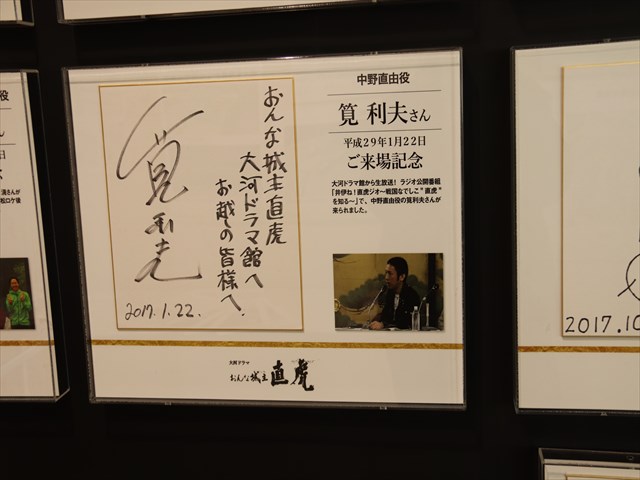 役
さん
日
中野直由役
筧 利夫さん
平成29年1月22日
ご来場記念
大河ドラマ館から生放送! ラジオ公開番組
「井伊ね!直虎ジオ〜戦国なでしこ"直虎"
を知る〜」で、中野直由役の筧利夫さんが
来られました。
おんな城主直虎
大河ドラマ館へ
お越の皆様へ.
筧利夫
2017.1.22.
大河ドラマ
おんな城主 直虎
2017.10